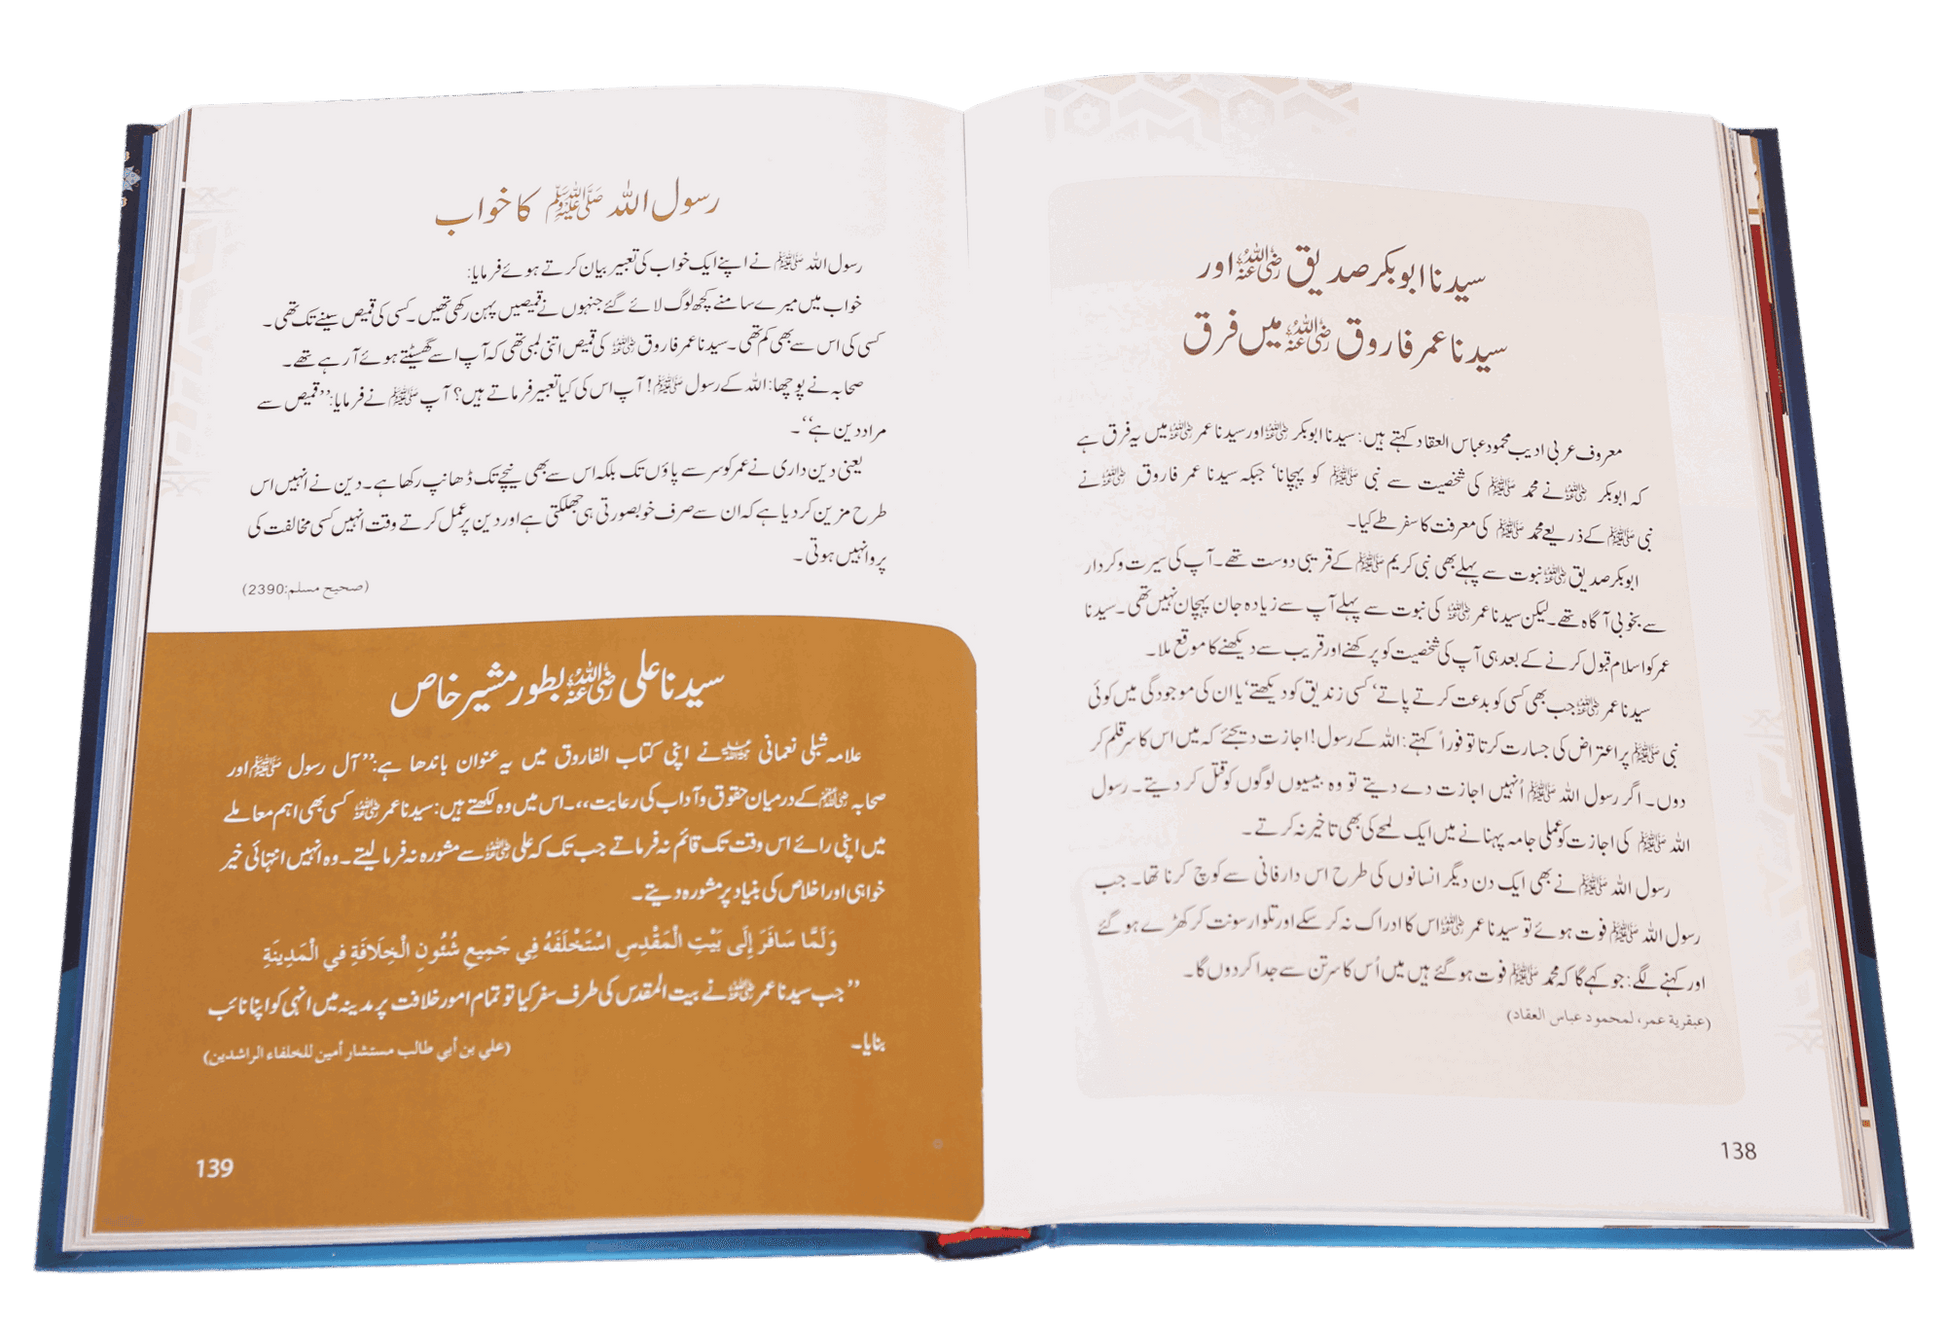 سیدنا ابوبکر صدیق رضی اللہ عنہ اور
سیدنا عمر فاروق رضی اللہ عنہ میں فرق
معروف عربی ادیب محمود عباس العقاد کہتے ہیں: سیدنا ابوبکر رضی اللہ عنہ اور سیدنا عمر رضی اللہ عنہ میں یہ فرق ہے
کہ ابوبکر رضی اللہ عنہ نے محمد ﷺ کی شخصیت سے نبی ﷺ کو پہچانا، جبکہ سیدنا عمر فاروق رضی اللہ عنہ نے
نبی ﷺ کے ذریعے محمد ﷺ کی معرفت کا سفر طے کیا۔
ابوبکر صدیق رضی اللہ عنہ نبوت سے پہلے بھی نبی کریم ﷺ کے قریبی دوست تھے۔ آپ کی سیرت و کردار
سے بخوبی آگاہ تھے۔ لیکن سیدنا عمر رضی اللہ عنہ کی نبوت سے پہلے آپ سے زیادہ جان پہچان نہیں تھی۔ سیدنا
عمر کو اسلام قبول کرنے کے بعد ہی آپ کی شخصیت کو پرکھنے اور قریب سے دیکھنے کا موقع ملا۔
سیدنا عمر رضی اللہ عنہ جب بھی کسی کو بدعت کرتے پاتے، کسی زندیق کو دیکھتے، یا ان کی موجودگی میں کوئی
نبی ﷺ پر اعتراض کی جسارت کرتا تو فوراً کہتے: اللہ کے رسول! اجازت دیجئے کہ میں اس کا سر قلم کر
دوں۔ اگر رسول اللہ ﷺ اُنہیں اجازت دے دیتے تو وہ بیسیوں لوگوں کو قتل کر دیتے۔ رسول
اللہ ﷺ کی اجازت کو عملی جامہ پہنانے میں ایک لمحے کی بھی تاخیر نہ کرتے۔
رسول اللہ ﷺ نے بھی ایک دن دیگر انسانوں کی طرح اس دار فانی سے کوچ کرنا تھا۔ جب
رسول اللہ ﷺ فوت ہوئے تو سیدنا عمر رضی اللہ عنہ اس کا ادراک نہ کر سکے اور تلوار سونت کر کھڑے ہو گئے
اور کہنے لگے: جو کہے گا کہ محمد ﷺ فوت ہو گئے ہیں میں اُس کا سر تن سے جدا کر دوں گا۔
(عبقرية عمر، لمحمود عباس العقاد)
138
رسول اللہ ﷺ کا خواب
رسول اللہ ﷺ نے اپنے ایک خواب کی تعبیر بیان کرتے ہوئے فرمایا:
خواب میں میرے سامنے کچھ لوگ لائے گئے جنہوں نے قمیصیں پہن رکھی تھیں۔ کسی کی قمیص سینے تک تھی۔
کسی کی اس سے بھی کم تھی۔ سیدنا عمر فاروق رضی اللہ عنہ کی قمیص اتنی لمبی تھی کہ آپ اسے گھسیٹتے ہوئے آ رہے تھے۔
صحابہ نے پوچھا: اللہ کے رسول ﷺ! آپ اس کی کیا تعبیر فرماتے ہیں؟ آپ ﷺ نے فرمایا: ’’قمیص سے
مراد دین ہے‘‘۔
یعنی دین داری نے عمر کو سر سے پاؤں تک بلکہ اس سے بھی نیچے تک ڈھانپ رکھا ہے۔ دین نے انہیں اس
طرح مزین کر دیا ہے کہ ان سے صرف خوبصورتی ہی جھلکتی ہے اور دین پر عمل کرتے وقت انہیں کسی مخالفت کی
پروا نہیں ہوتی۔
(صحيح مسلم:2390)
سیدنا علی رضی اللہ عنہ بطور مشیر خاص
علامہ شبلی نعمانی رحمۃ اللہ علیہ نے اپنی کتاب الفاروق میں یہ عنوان باندھا ہے: ’’آل رسول ﷺ اور
صحابہ رضی اللہ عنہم کے درمیان حقوق و آداب کی رعایت،،۔ اس میں وہ لکھتے ہیں: سیدنا عمر رضی اللہ عنہ کسی بھی اہم معاملے
میں اپنی رائے اس وقت تک قائم نہ فرماتے جب تک کہ علی رضی اللہ عنہ سے مشورہ نہ فرما لیتے۔ وہ انہیں انتہائی خیر
خواہی اور اخلاص کی بنیاد پر مشورہ دیتے۔
وَلَمَّا سَافَرَ إِلَى بَيْتِ الْمَقْدِسِ اسْتَخْلَفَهُ فِي جَمِيعِ شُئُونِ الْخِلَافَةِ فِي الْمَدِينَةِ
’’جب سیدنا عمر رضی اللہ عنہ نے بیت المقدس کی طرف سفر کیا تو تمام امور خلافت پر مدینہ میں انہی کو اپنا نائب
بنایا۔
(علي بن أبي طالب مستشار أمين للخلفاء الراشدين)
139